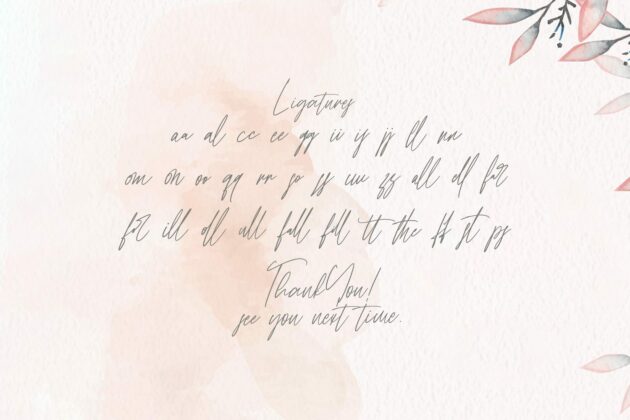 Ligatures
aa al cc ee gg ii ij jj ll nn
om on oo qq rr so ss uu zz all ell for
for ill oll ull fall full tt the ff st ps
ThankYou!
see you next time.